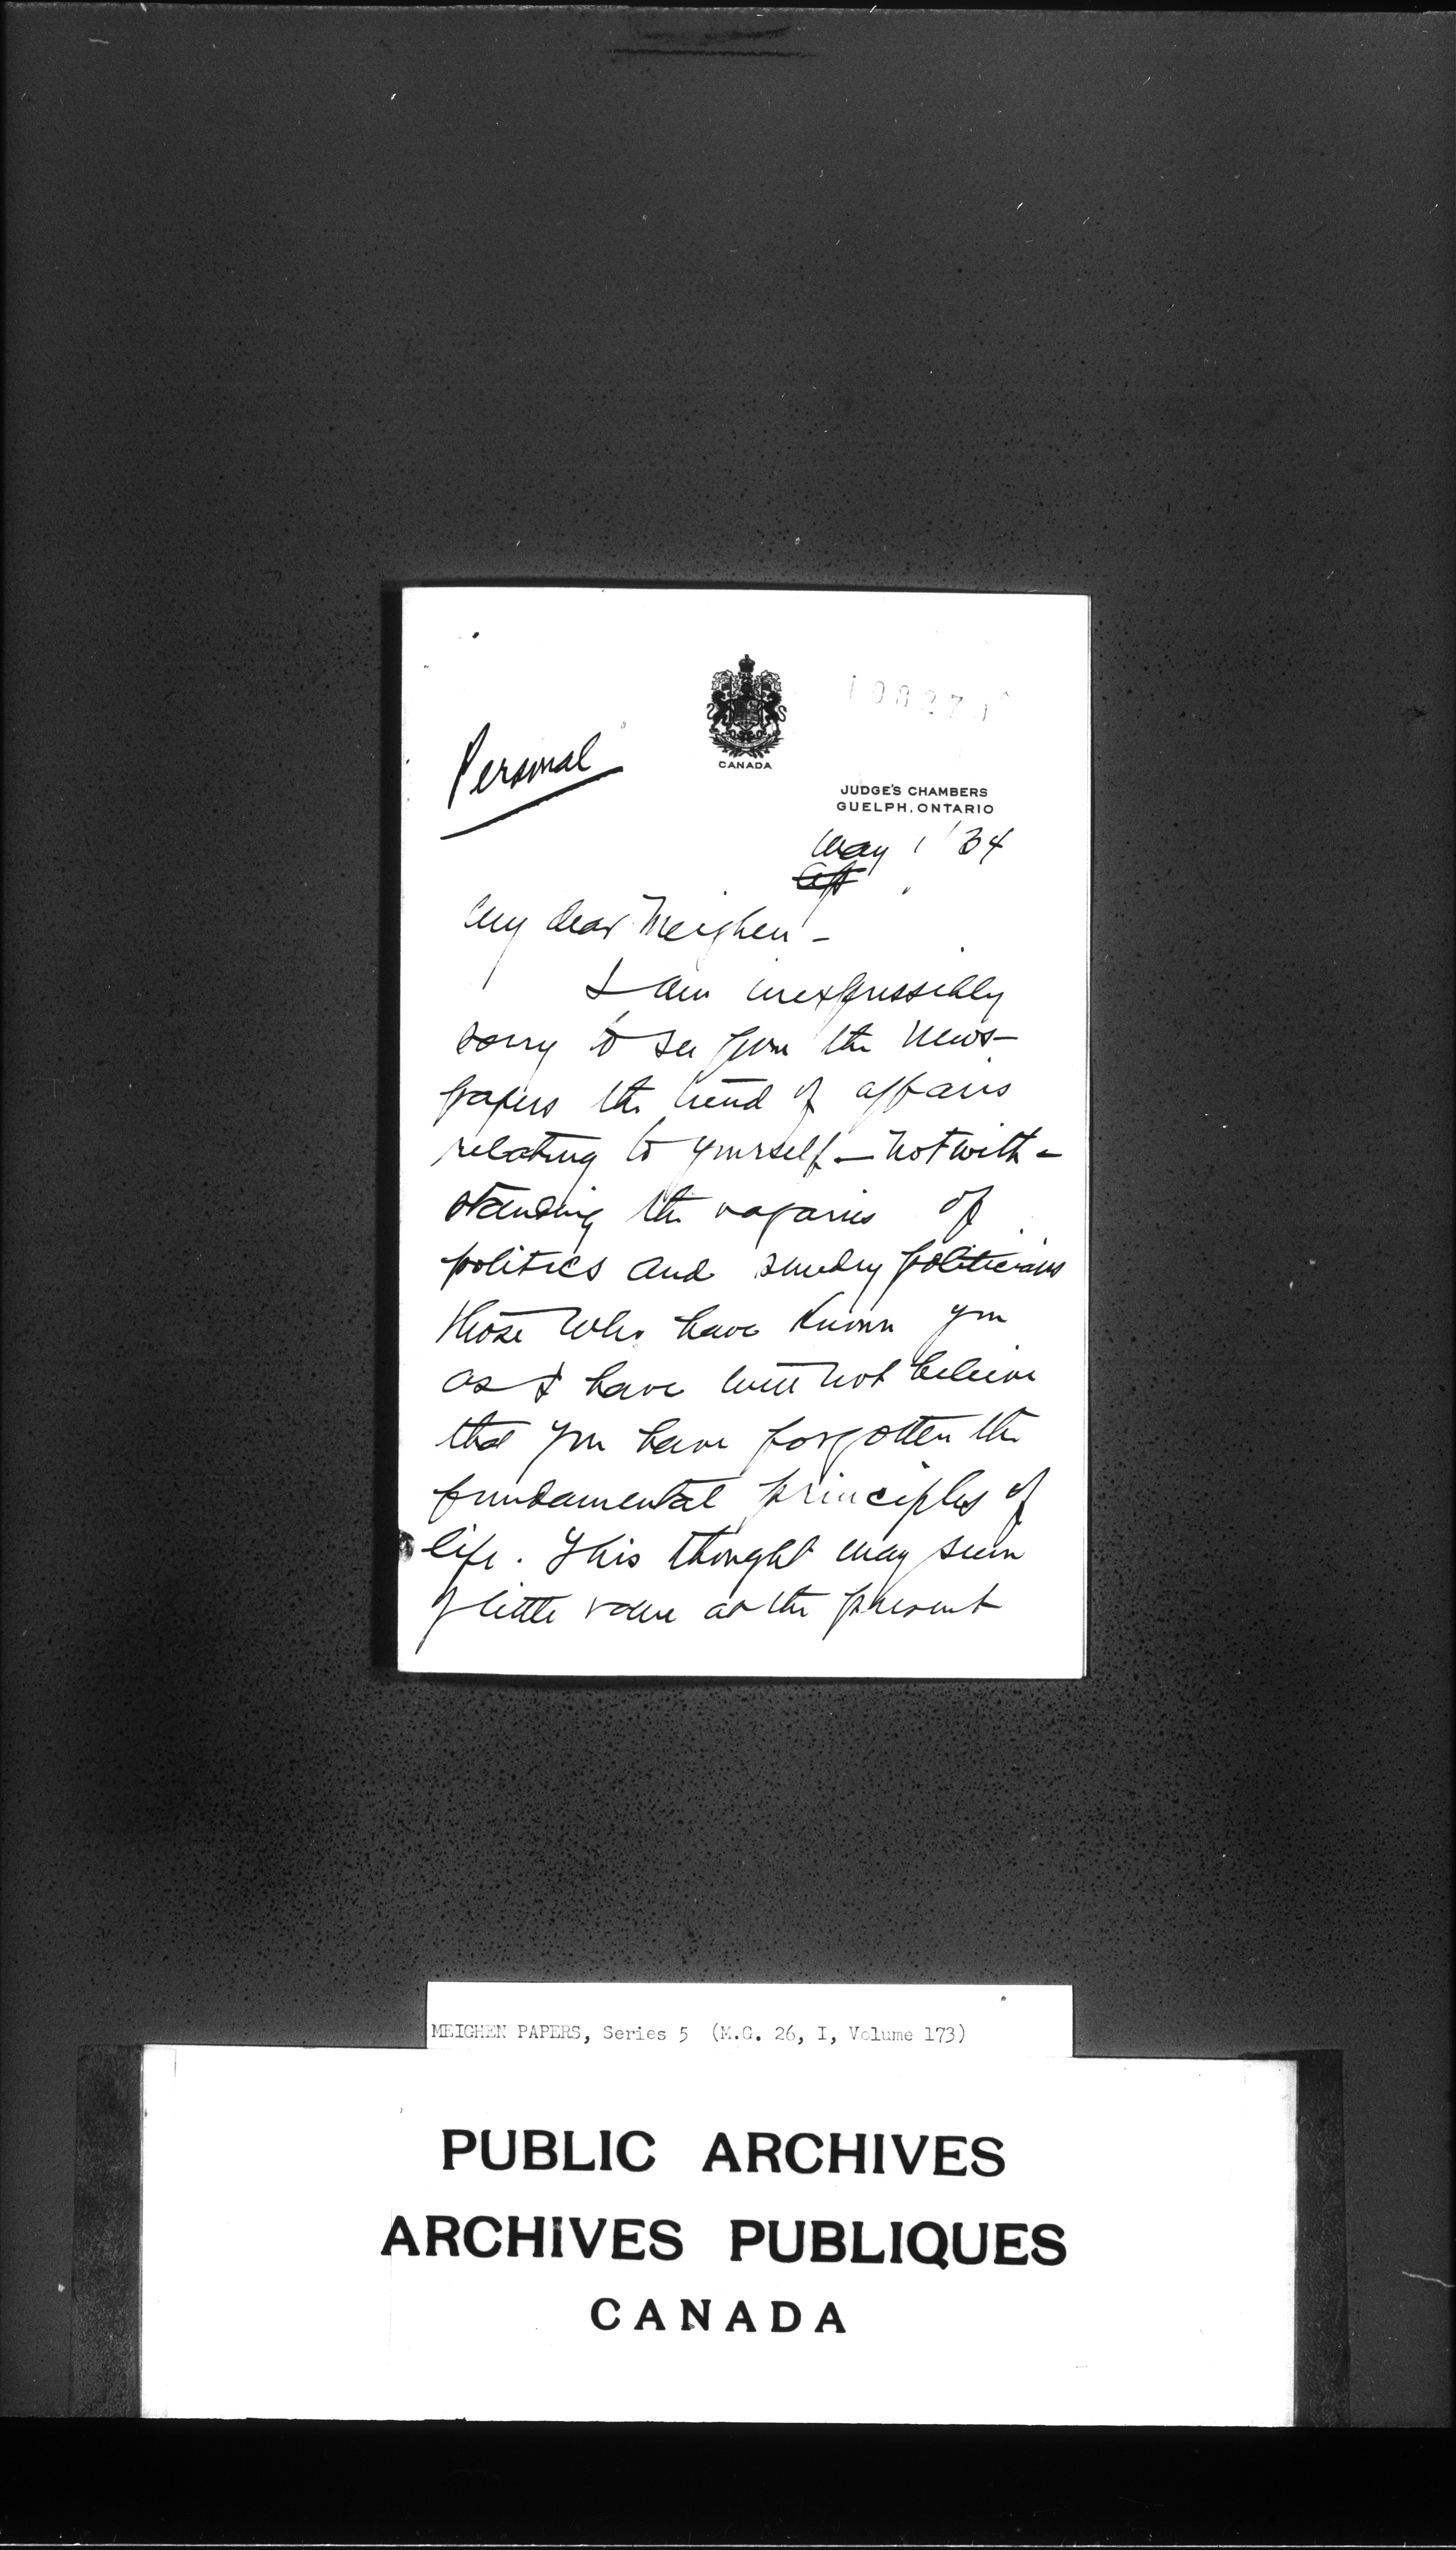 Personal
CANADA
JUDGE'S CHAMBERS
GUELPH, ONTARIO
May 1 '34
My dear Meighen -
I am inexpressibly
sorry to see from the news-
papers the trend of affairs
relating to yourself - notwith-
standing the vagaries of
politics and sundry politicians
those who have known you
as I have will not believe
that you have forgotten the
fundamental principles of
life. This thought may seem
of little value at the present
MEIGHEN PAPERS, Series 5 (M.G. 26, I, Volume 173)
PUBLIC ARCHIVES
ARCHIVES PUBLIQUES
CANADA